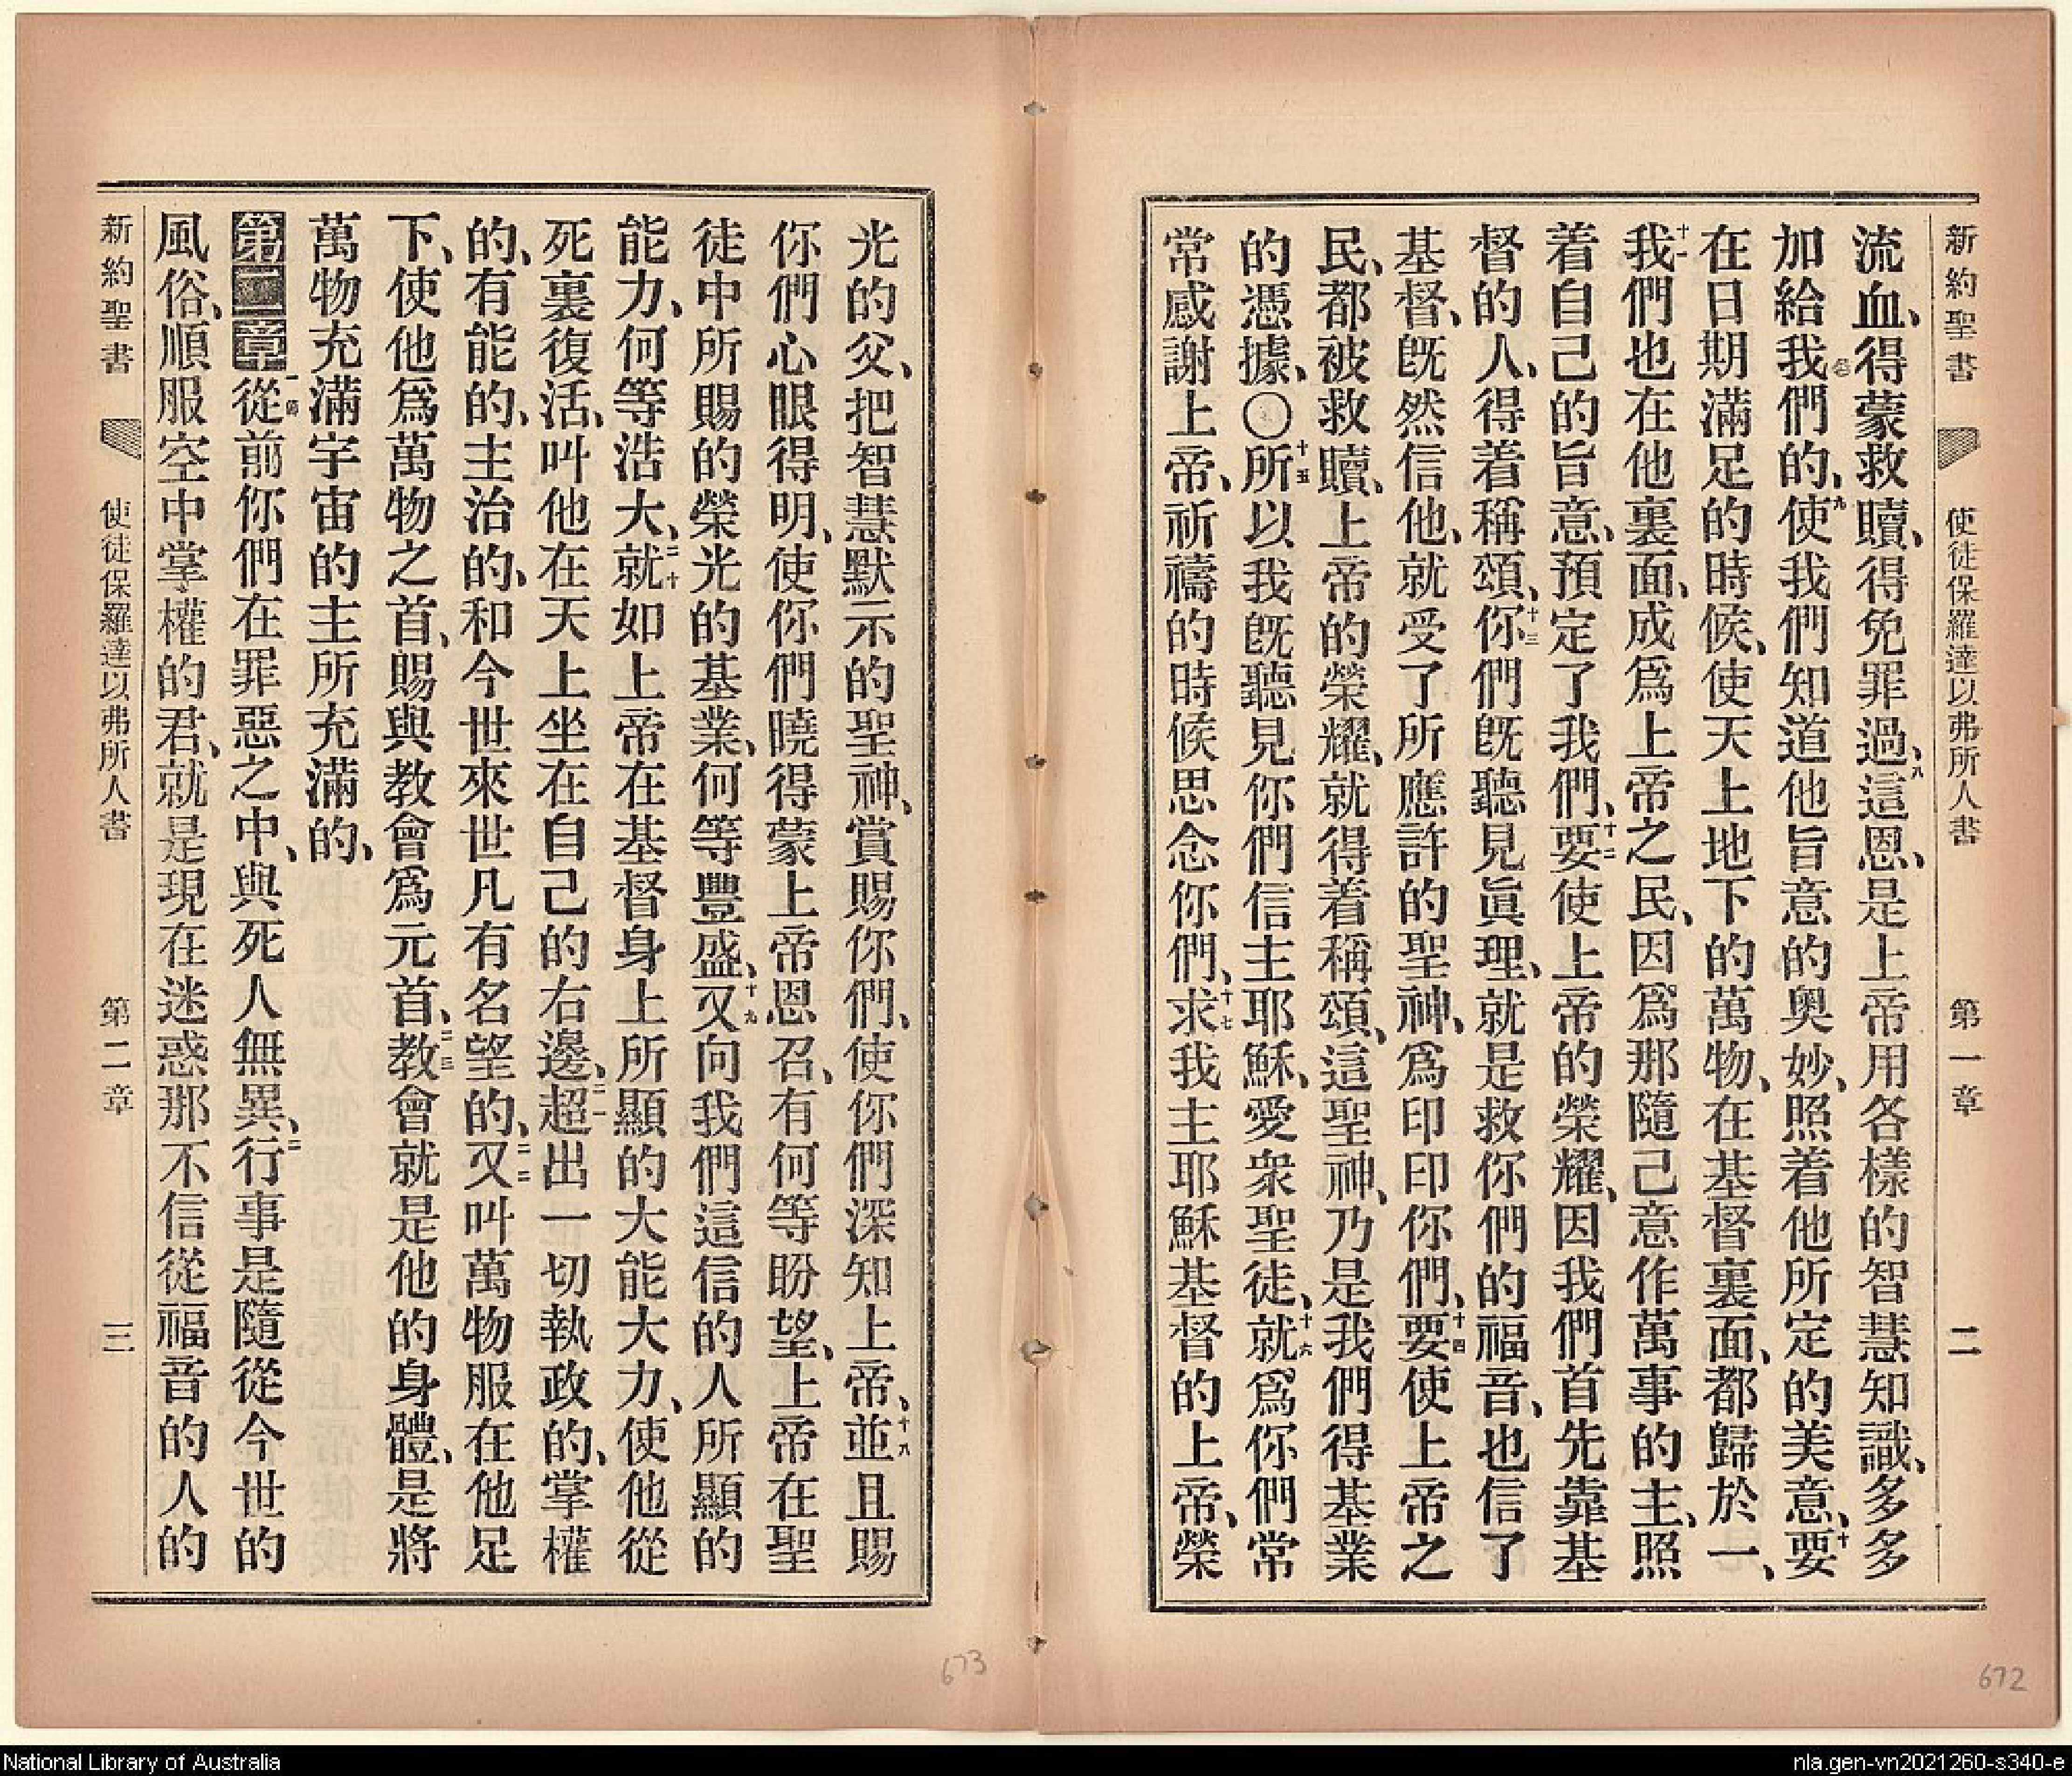 新約聖書 使徒保羅達以弗所人書 第一章 二
流血、得蒙救贖、得免罪過、八這恩、是上帝用各樣的智慧知識、多多
加給我們的、九使我們知道他旨意的奧妙、照着他所定的美意、十要
在日期滿足的時候、使天上地下的萬物、在基督裏面、都歸於一、
十一我們也在他裏面、成爲上帝之民、因爲那隨己意作萬事的主、照
着自己的旨意、預定了我們、十二要使上帝的榮耀、因我們首先靠基
督的人、得着稱頌、十三你們旣聽見眞理、就是救你們的福音、也信了
基督、旣然信他、就受了所應許的聖神、爲印印你們、十四要使上帝之
民、都被救贖、上帝的榮耀、就得着稱頌、這聖神、乃是我們得基業
的憑據、〇十五所以我旣聽見你們信主耶穌、愛衆聖徒、十六就爲你們常
常感謝上帝、祈禱的時候思念你們、十七求我主耶穌基督的上帝、榮
光的父、把智慧默示的聖神、賞賜你們、使你們深知上帝、十八並且賜
你們心眼得明、使你們曉得蒙上帝恩召、有何等盼望、上帝在聖
徒中所賜的榮光的基業、何等豐盛、十九又向我們這信的人所顯的
能力、何等浩大、二十就如上帝在基督身上所顯的大能大力、使他從
死裏復活、叫他在天上坐在自己的右邊、二一超出一切執政的、掌權
的、有能的、主治的、和今世來世凡有名望的、二二又叫萬物服在他足
下、使他爲萬物之首、賜與教會爲元首、二三教會就是他的身體、是將
萬物充滿宇宙的主所充滿的、
第二章一節從前你們在罪惡之中、與死人無異、二行事是隨從今世的
風俗、順服空中掌權的君、就是現在迷惑那不信從福音的人的
新約聖書 使徒保羅達以弗所人書 第二章 三
673
672
National Library of Australia
nla.gen-vn2021260-s340-e